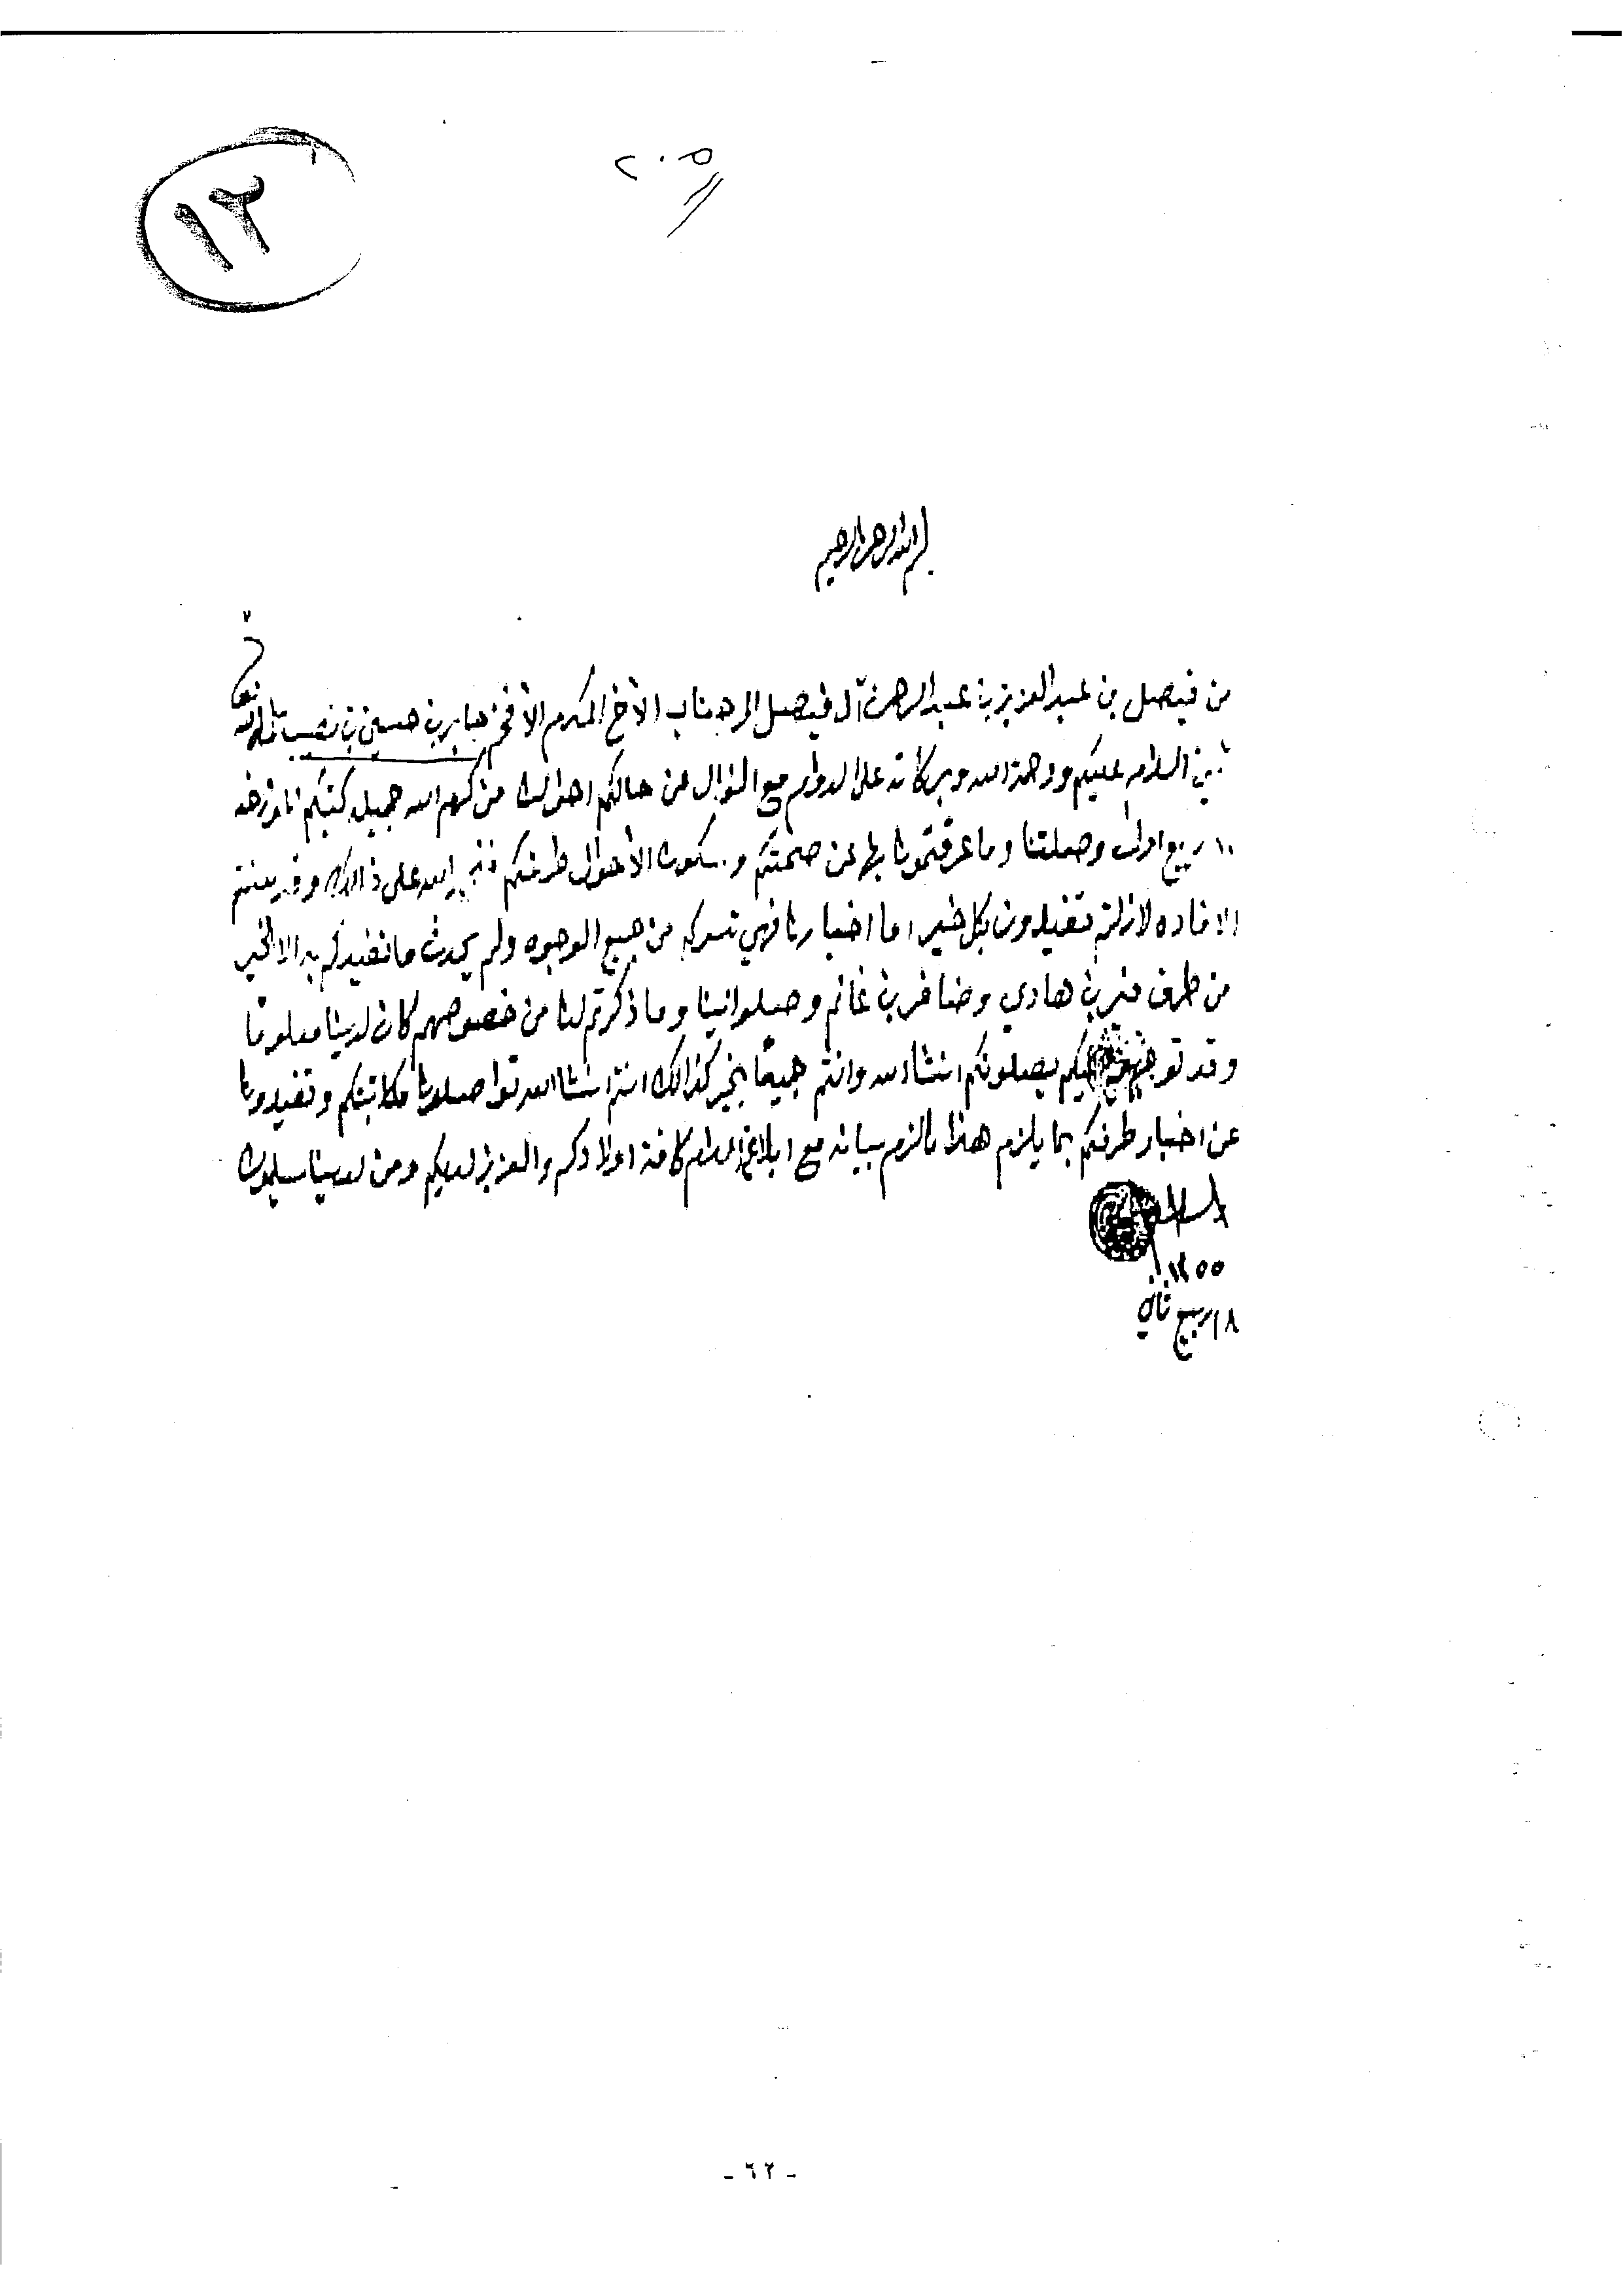 ١٢
٢٠٥
بسم الله الرحمن الرحيم
من فيصل بن عبد العزيز بن عبد الرحمن آل فيصل الى جناب الأخ المكرم الأفخم جابر بن حسين بن نصيب سلمه الله
السلام عليكم ورحمة الله وبركاته على الدوام مع السؤال عن حالكم احوالنا من كرم الله جميله كتبكم المؤرخه
١٠ ربيع اول وصلتنا وما عرفتمونا بها عن صحتكم وسكون الأحوال طرفكم الله على ذالك
الافاده لازلتم تفيدون بكل خير اما اخبارنا فهي تسركم من جميع الوجوه ولم يحدث ما نفيدكم به الا الخير
من طرف بن هادي وضافر بن غانم وصلوا الينا وما ذكرتم لنا من خصوصهم كان لدينا معلومًا
وقد يصلونكم انشاء الله وانتم جميعًا بخير كذالك انتم انشاء الله تواصلونا مكاتبتكم وتفيدونا
عن اخبار طرفكم بما يلزم هذا مالزم بيانه مع ابلاغ السلام كافة اولادكم والعزيز لديكم ومن لدينا يسلمون
والسلام
١٣٥٥
١٨ ربيع ثاني
- ٦٢ -